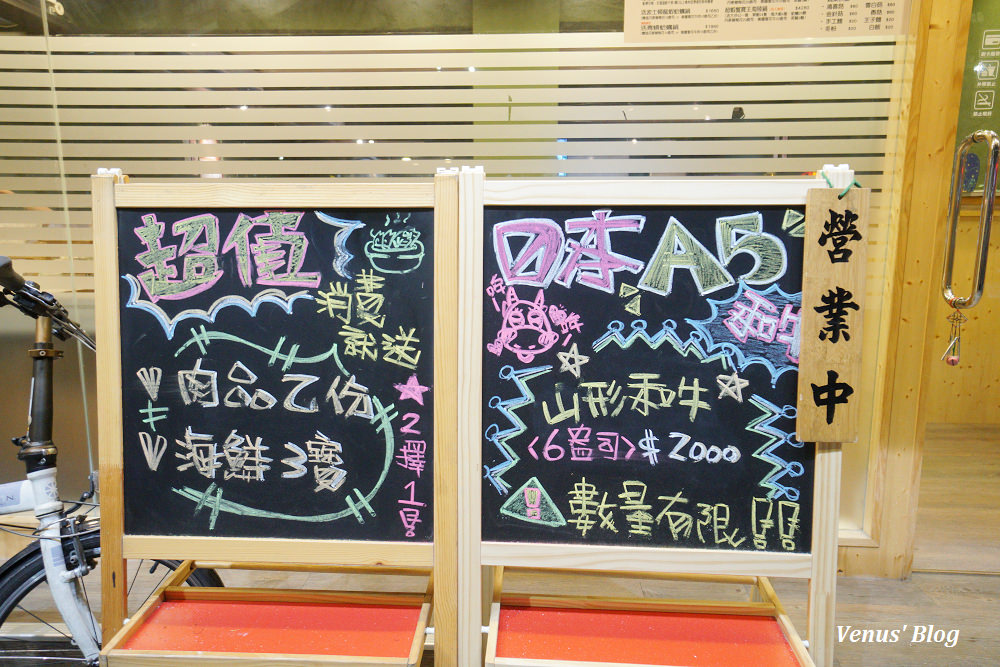 超值
消費
就送
肉品乙份
海鮮3寶
★2擇1!
日本A5
和牛
山形和牛
<6盎司>$2000
數量有限!!
營業中
Venus' Blog